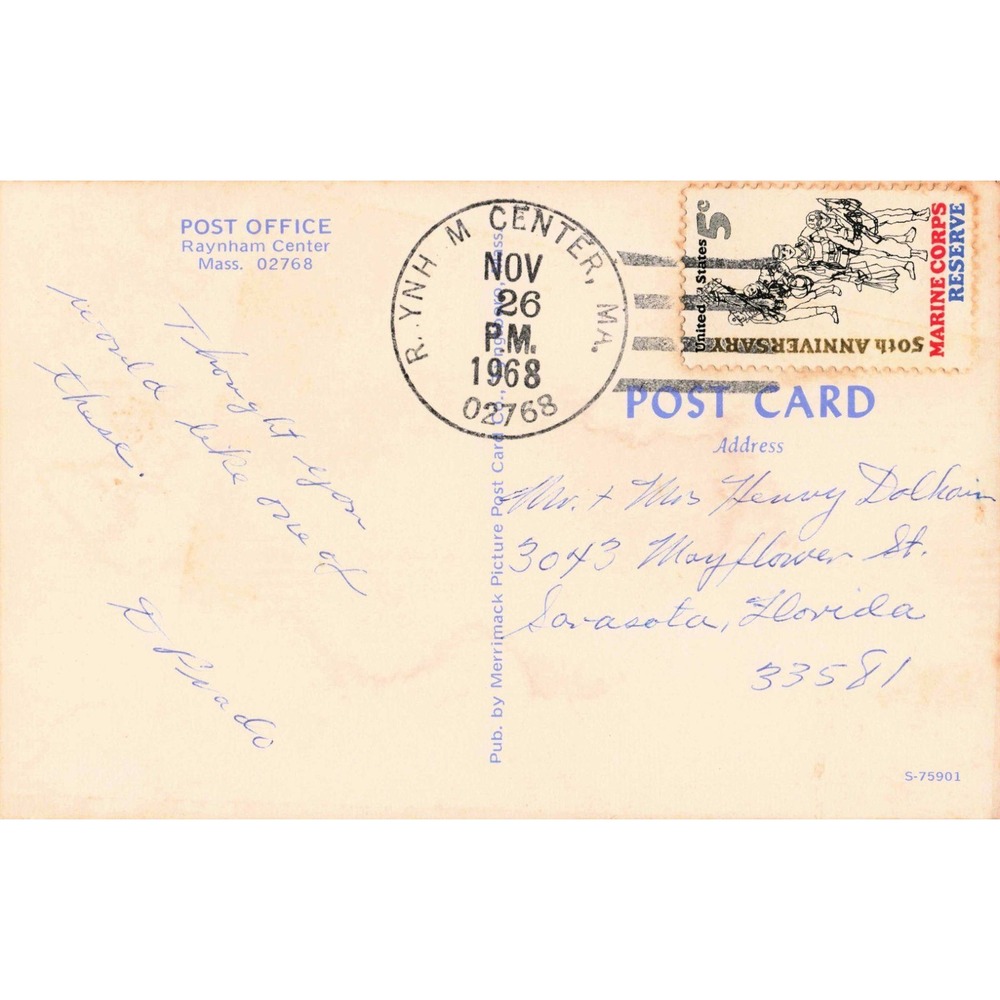 POST OFFICE
Raynham Center
Mass. 02768
Thought you
would like one of
these.
D Prado
Pub. by Merrimack Picture Post Card Co., Mass.
R. YNH M CENTER, MA.
NOV
26
P.M.
1968
02768
United States 5c
50th ANNIVERSARY
MARINE CORPS
RESERVE
POST CARD
Address
Mr. + Mrs Henry
3043 Mayflower St.
Sarasota, Florida
33581
S-75901